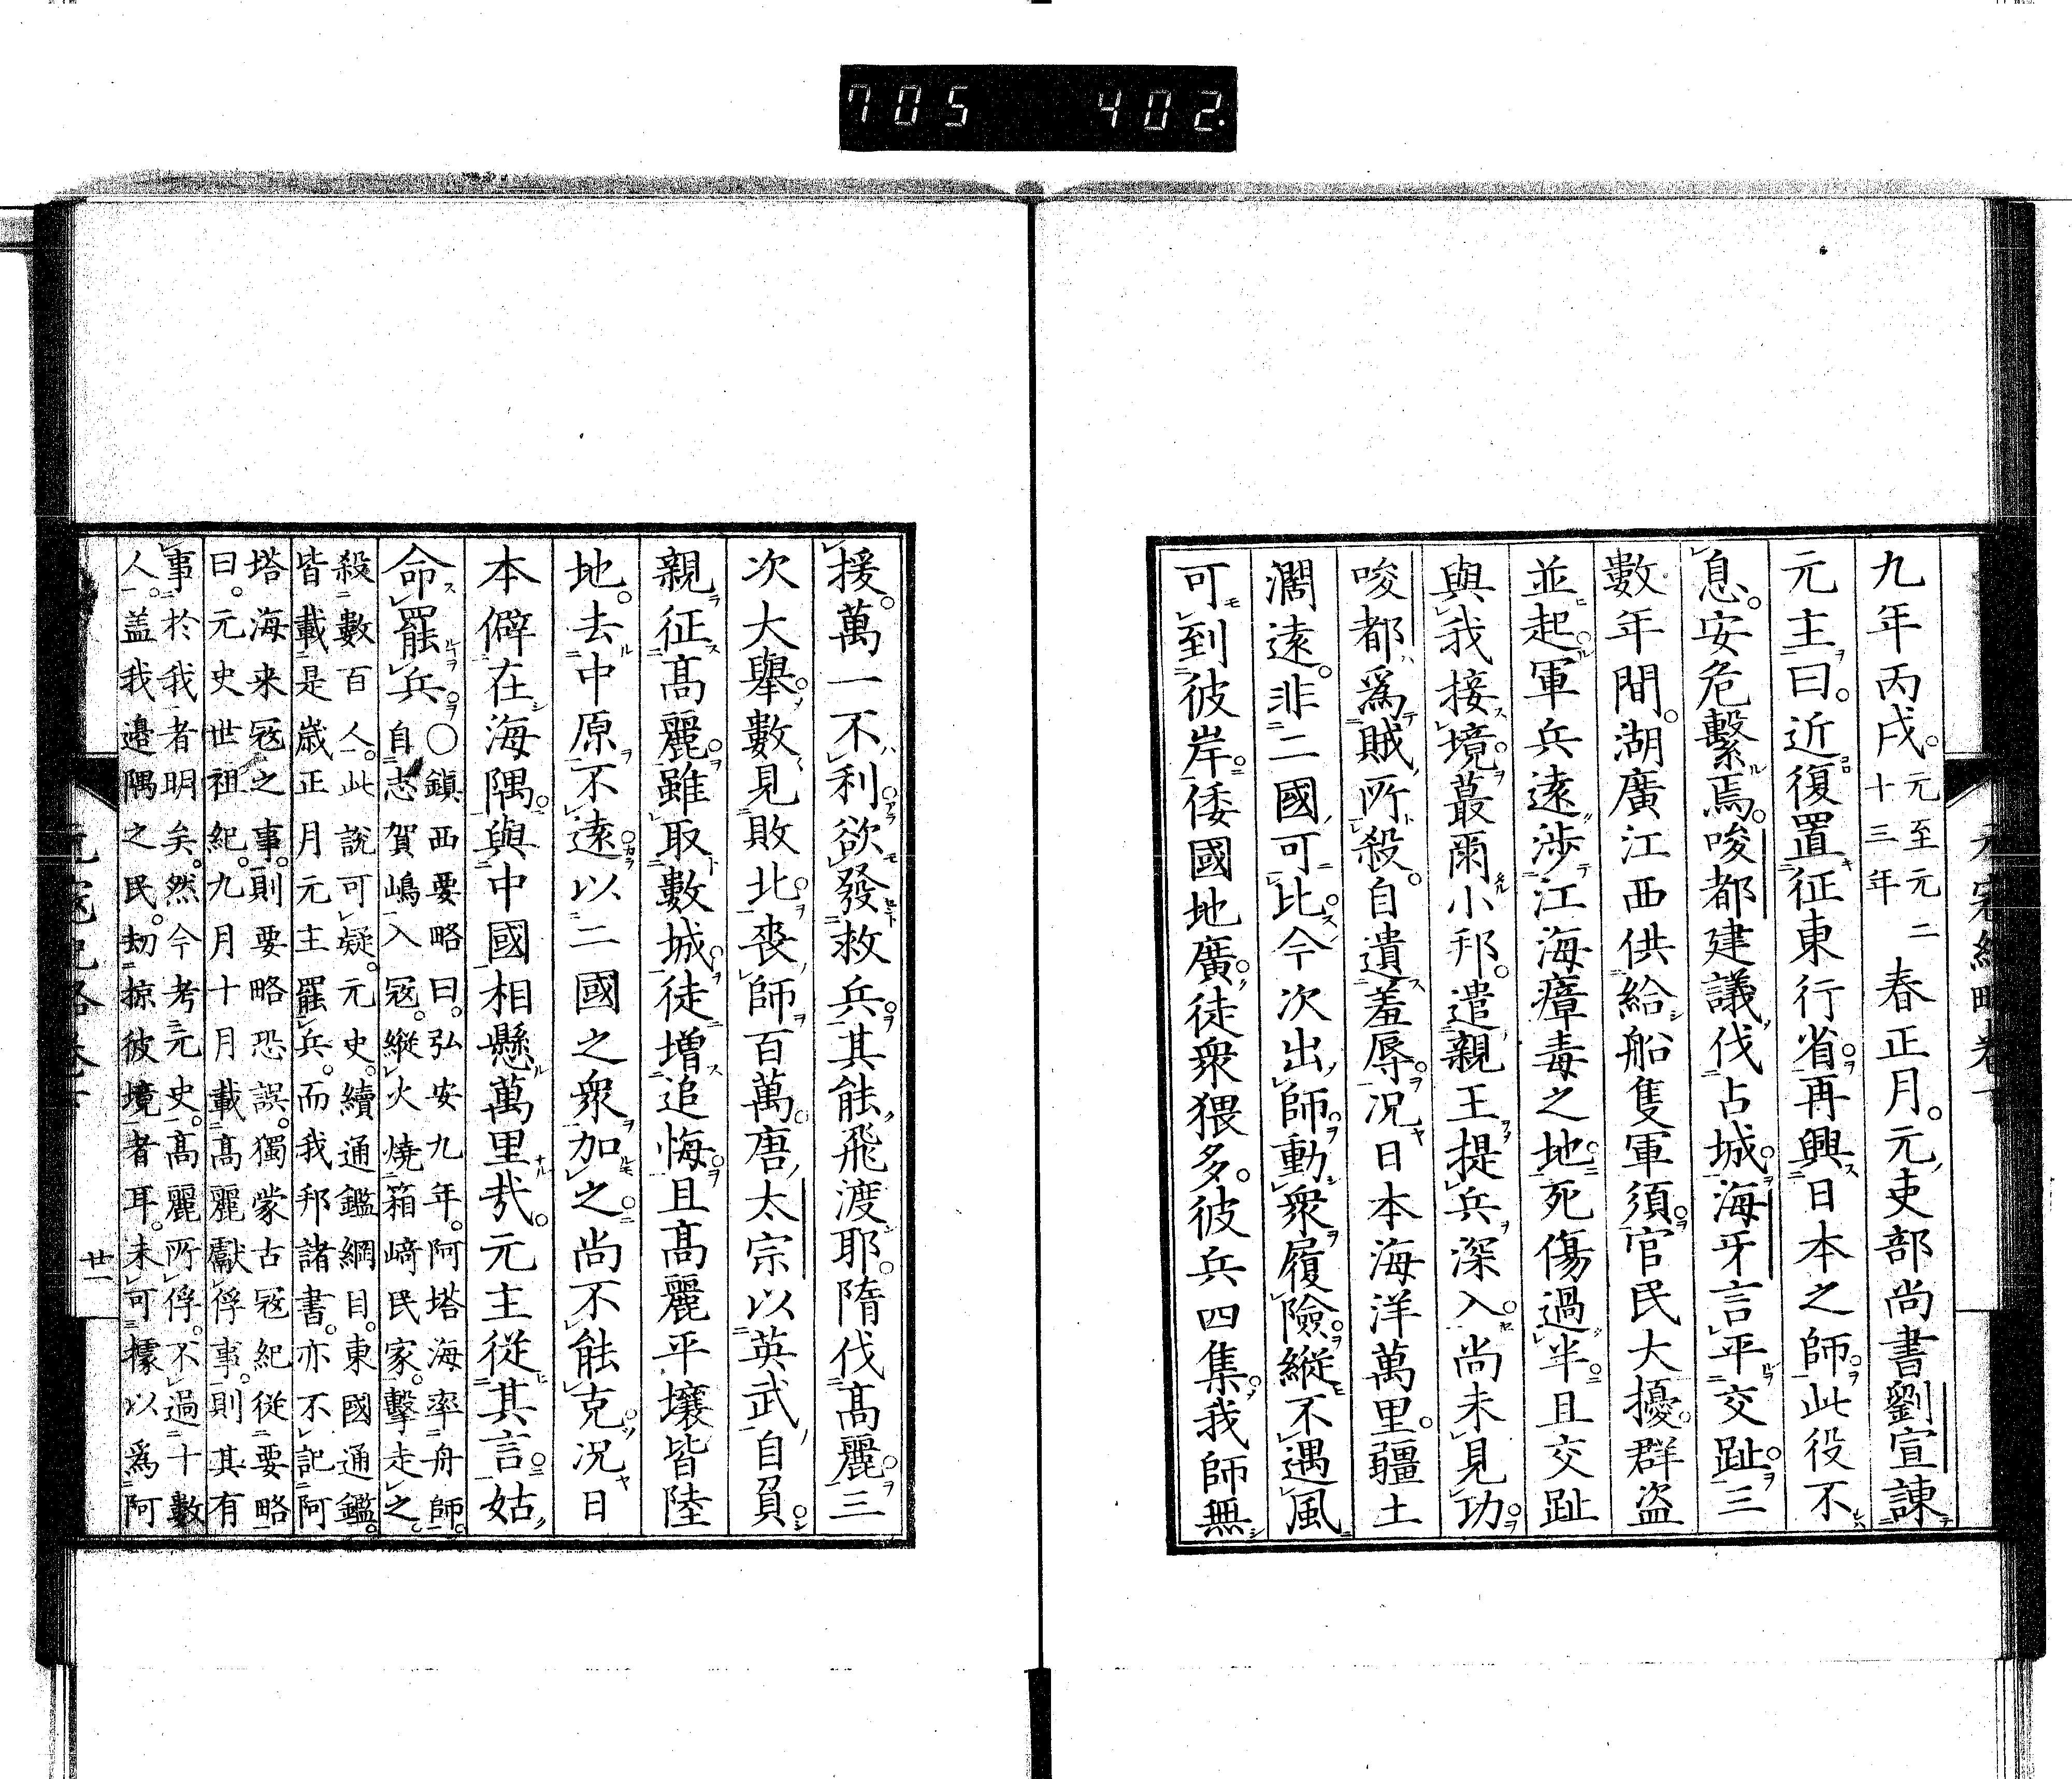 705 402.
九年丙戌。元至元二十三年 春正月。元吏部尚書劉宣諫
元主曰。近復置征東行省。再興日本之師。此役不
息。安危繫焉。唆都建議伐占城。海牙言平交趾。三
數年間。湖廣江西供給船隻軍須。官民大擾。群盗
並起。軍兵遠渉江海瘴毒之地。死傷過半。且交趾
與我接境。蕞爾小邦。遣親王提兵深入。尚未見功。
唆都爲賊所殺。自遺羞辱。况日本海洋萬里。疆土
濶遠。非二國可比。今次出師。動衆履險。縱不遇風
可到彼岸。倭國地廣。徒衆猥多。彼兵四集。我師無
援。萬一不利。欲發救兵。其能飛渡耶。隋伐髙麗。三
次大舉。數見敗北。喪師百萬。唐太宗以英武自負。
親征髙麗。雖取數城。徒增追悔。且髙麗平壤皆陸
地。去中原不遠。以二國之衆加之。尚不能克。况日
本僻在海隅。與中國相懸萬里哉。元主從其言。姑
命罷兵。
〇鎮西要略曰。弘安九年。阿塔海率舟師。
自志賀嶋入冦。縱火燒箱﨑民家。擊走之。
殺數百人。此說可疑。元史。續通鑑綱目。東國通鑑。
皆載是歲正月元主罷兵。而我邦諸書。亦不記阿
塔海来冦之事。則要略恐誤。獨蒙古冦紀從要略
曰。元史世祖紀。九月十月載髙麗獻俘事。則其有
事於我者明矣。然今考元史。髙麗所俘。不過十數
人。盖我邊隅之民。劫掠彼境者耳。未可據以爲阿
廿一